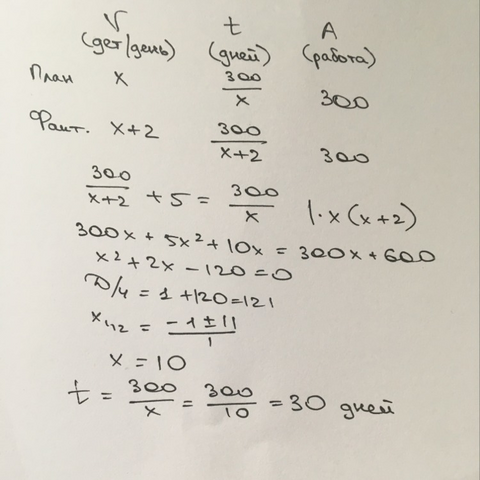 V t A
(дет/день) (дней) (работа)
План x 300/x 300
Факт. x+2 300/x+2 300
300/x+2 + 5 = 300/x |·x(x+2)
300x + 5x² + 10x = 300x + 600
x² + 2x - 120 = 0
D/4 = 1 + 120 = 121
x₁,₂ = -1 ± 11/1
x = 10
t = 300/x = 300/10 = 30 дней